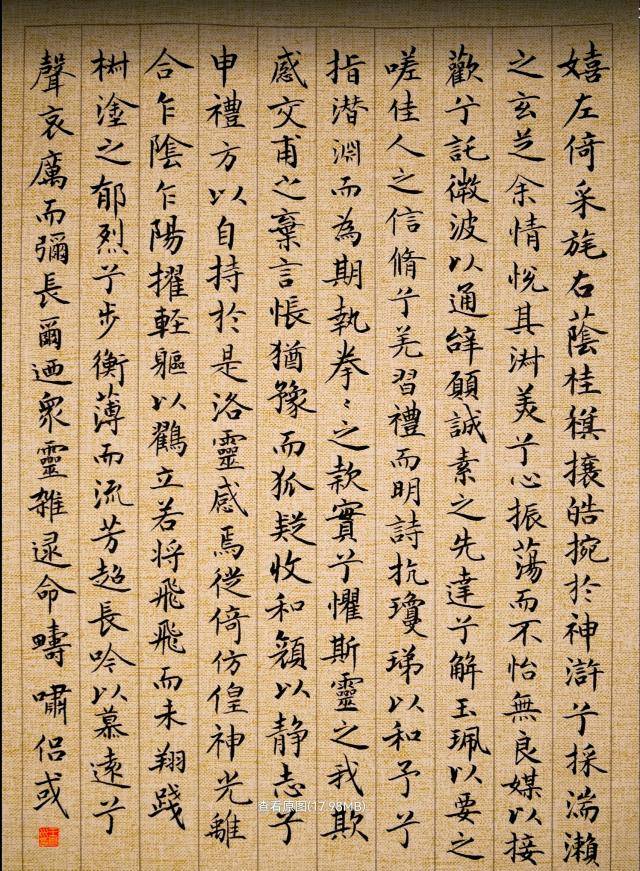 嬉左倚采旄右蔭桂旗攘皓捥於神滸兮採湍瀨
之玄芝余情悅其淑美兮心振蕩而不怡無良媒以接
歡兮託微波以通辝願誠素之先達兮解玉珮以要之
嗟佳人之信脩兮羌習禮而明詩抗瓊珶以和予兮
指潜淵而為期執拳〻之款實兮懼斯靈之我欺
感交甫之棄言悵猶豫而狐疑收和顏以静志兮
申禮方以自持於是洛靈感焉徙倚仿偟神光離
合乍陰乍陽擢輕軀以鶴立若将飛飛而未翔踐
樹塗之郁烈兮步衡薄而流芳超長吟以慕遠兮
聲哀厲而彌長爾迺衆靈雜遝命疇嘯侣或
查看原图(17.98MB)